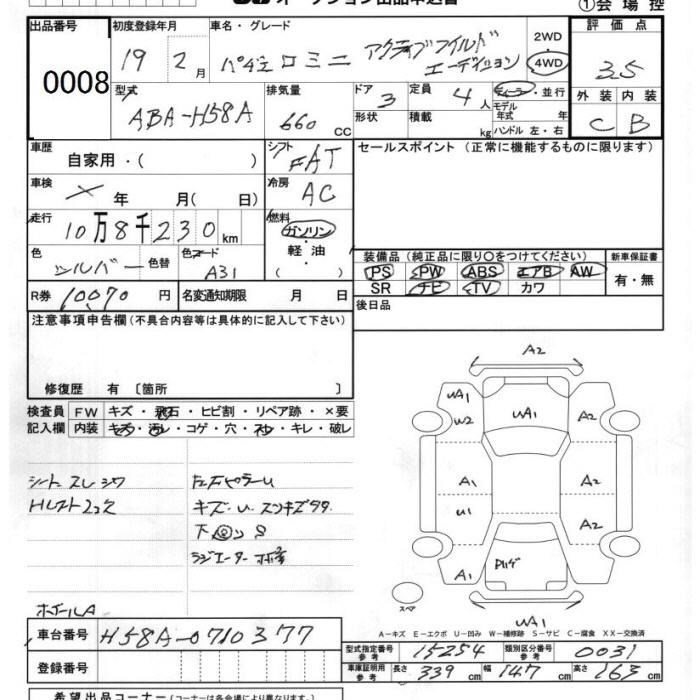 オークション出品申込書
①会場控
出品番号
0008
初度登録年月
19年 2月
車名・グレード
パジェロミニ アクティブフィールドエーディション
2WD
4WD
評価点
3.5
型式
ABA-H58A
排気量
660 CC
ドア
3
形状
定員
4人
積載
kg
ディーラー・並行
モデル年式 年
ハンドル 左・右
外装 内装
C B
車歴
自家用・( )
シフト
FAT
セールスポイント (正常に機能するものに限ります)
車検
年 月( 日)
冷房
AC
走行
10万8千230km
燃料
ガソリン
軽油
( )
色
シルバー
色替
色コード
A31
装備品 (純正品に限り○をつけてください)
PS PW ABS エアB AW
SR ナビ TV カワ
新車保証書
有・無
R券 10070円
名変通知期限 月 日
後日品
注意事項申告欄(不具合内容等は具体的に記入して下さい)
修復歴 有 〔箇所 〕
検査員記入欄
FW キズ・飛石・ヒビ割・リペア跡・×要
内装 キズ・汚レ・コゲ・穴・スレ・キレ・破レ
シート スレ シワ
ホイールA
キズ・U
A2
UA1
W2
UA1
A2
A1
A2
U1
A2
A1
UA1
スペア
A-キズ E-エクボ U-凹み W-補修跡 S-サビ C-腐食 XX-交換済
車台番号
H58A-0710377
登録番号
型式指定番号 参考
15254
類別区分番号 参考
0031
車庫証明用 参考
長さ 339cm 幅 147cm 高さ 163cm
希望出品コーナー(コーナーは各会場により異なります。)